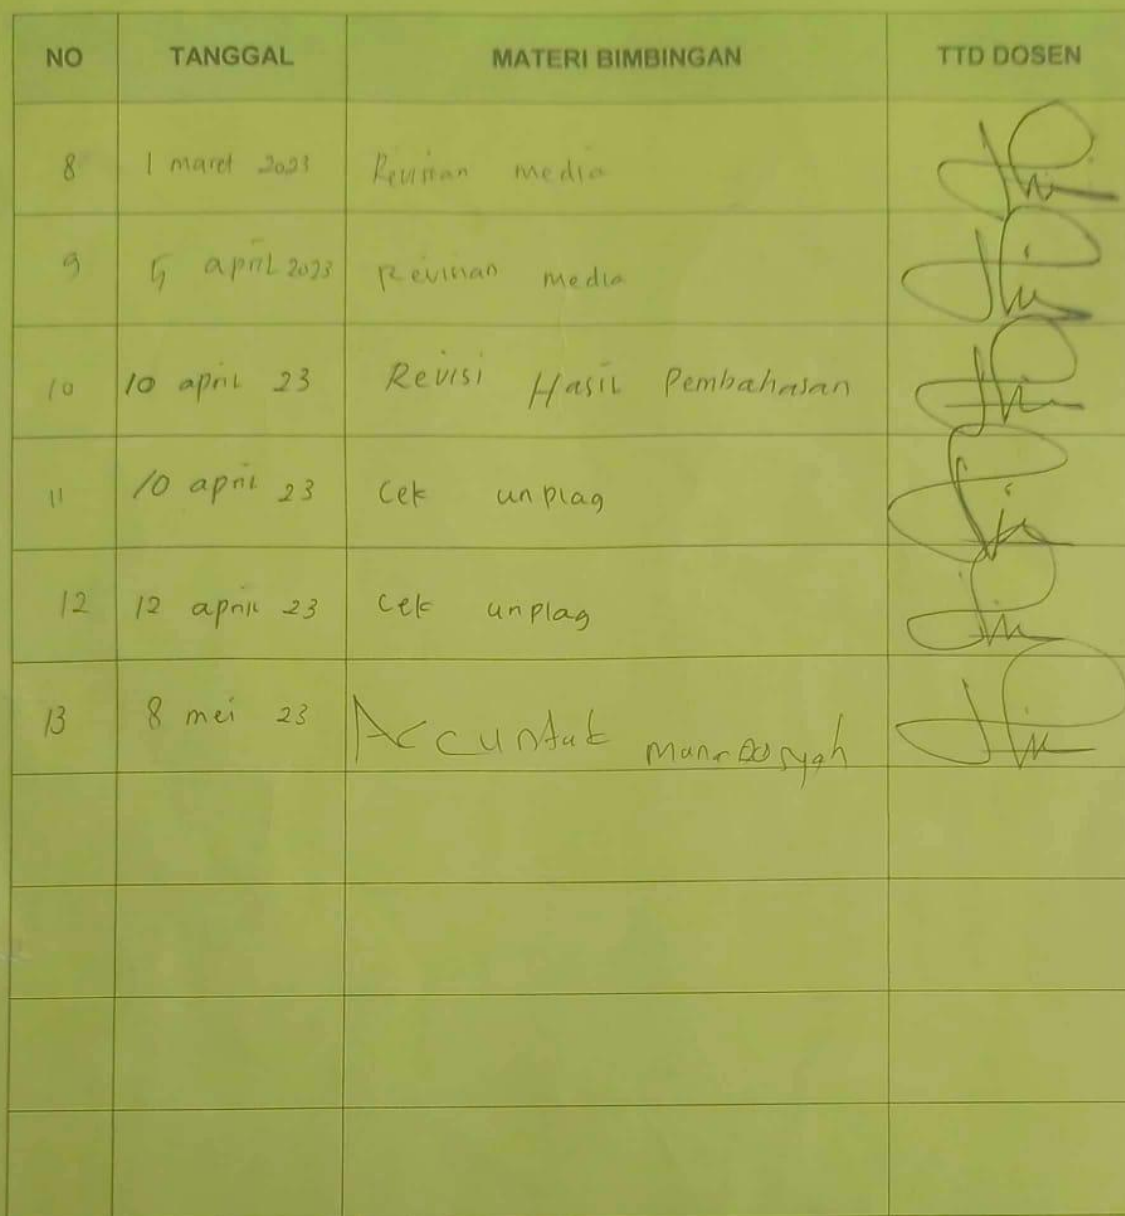 NO TANGGAL MATERI BIMBINGAN TTD DOSEN
8 1 maret 2023 Revisian media
9 5 april 2023 Revisian media
10 10 april 23 Revisi Hasil Pembahasan
11 10 april 23 Cek unplag
12 12 april 23 Cek unplag
13 8 mei 23 Acc untuk